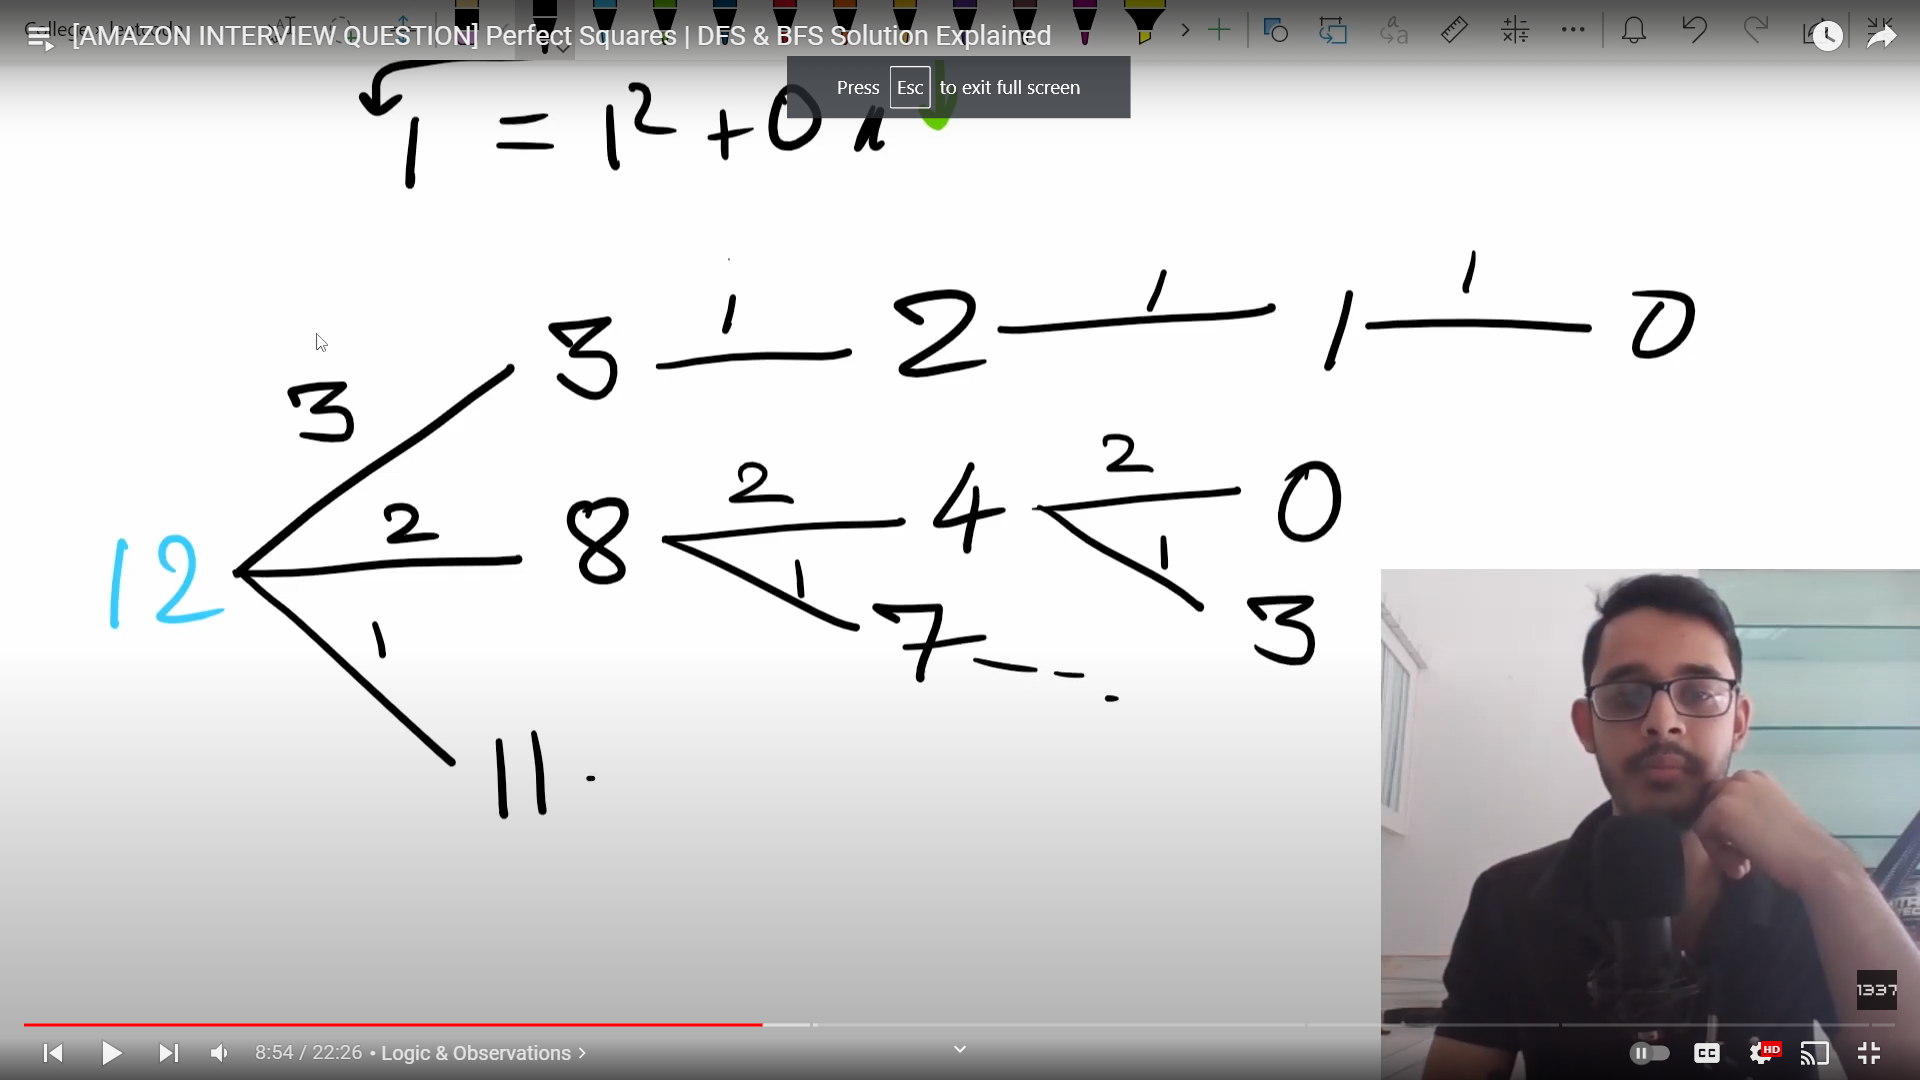 [AMAZON INTERVIEW QUESTION] Perfect Squares | DFS & BFS Solution Explained
Press Esc to exit full screen
1 = 1² + 0 x
3 3 1 2 1 1 1 0
12 2 8 2 4 2 0
1 3
1 7 - - .
1 11 .
1337
8:54 / 22:26 • Logic & Observations >
CC HD